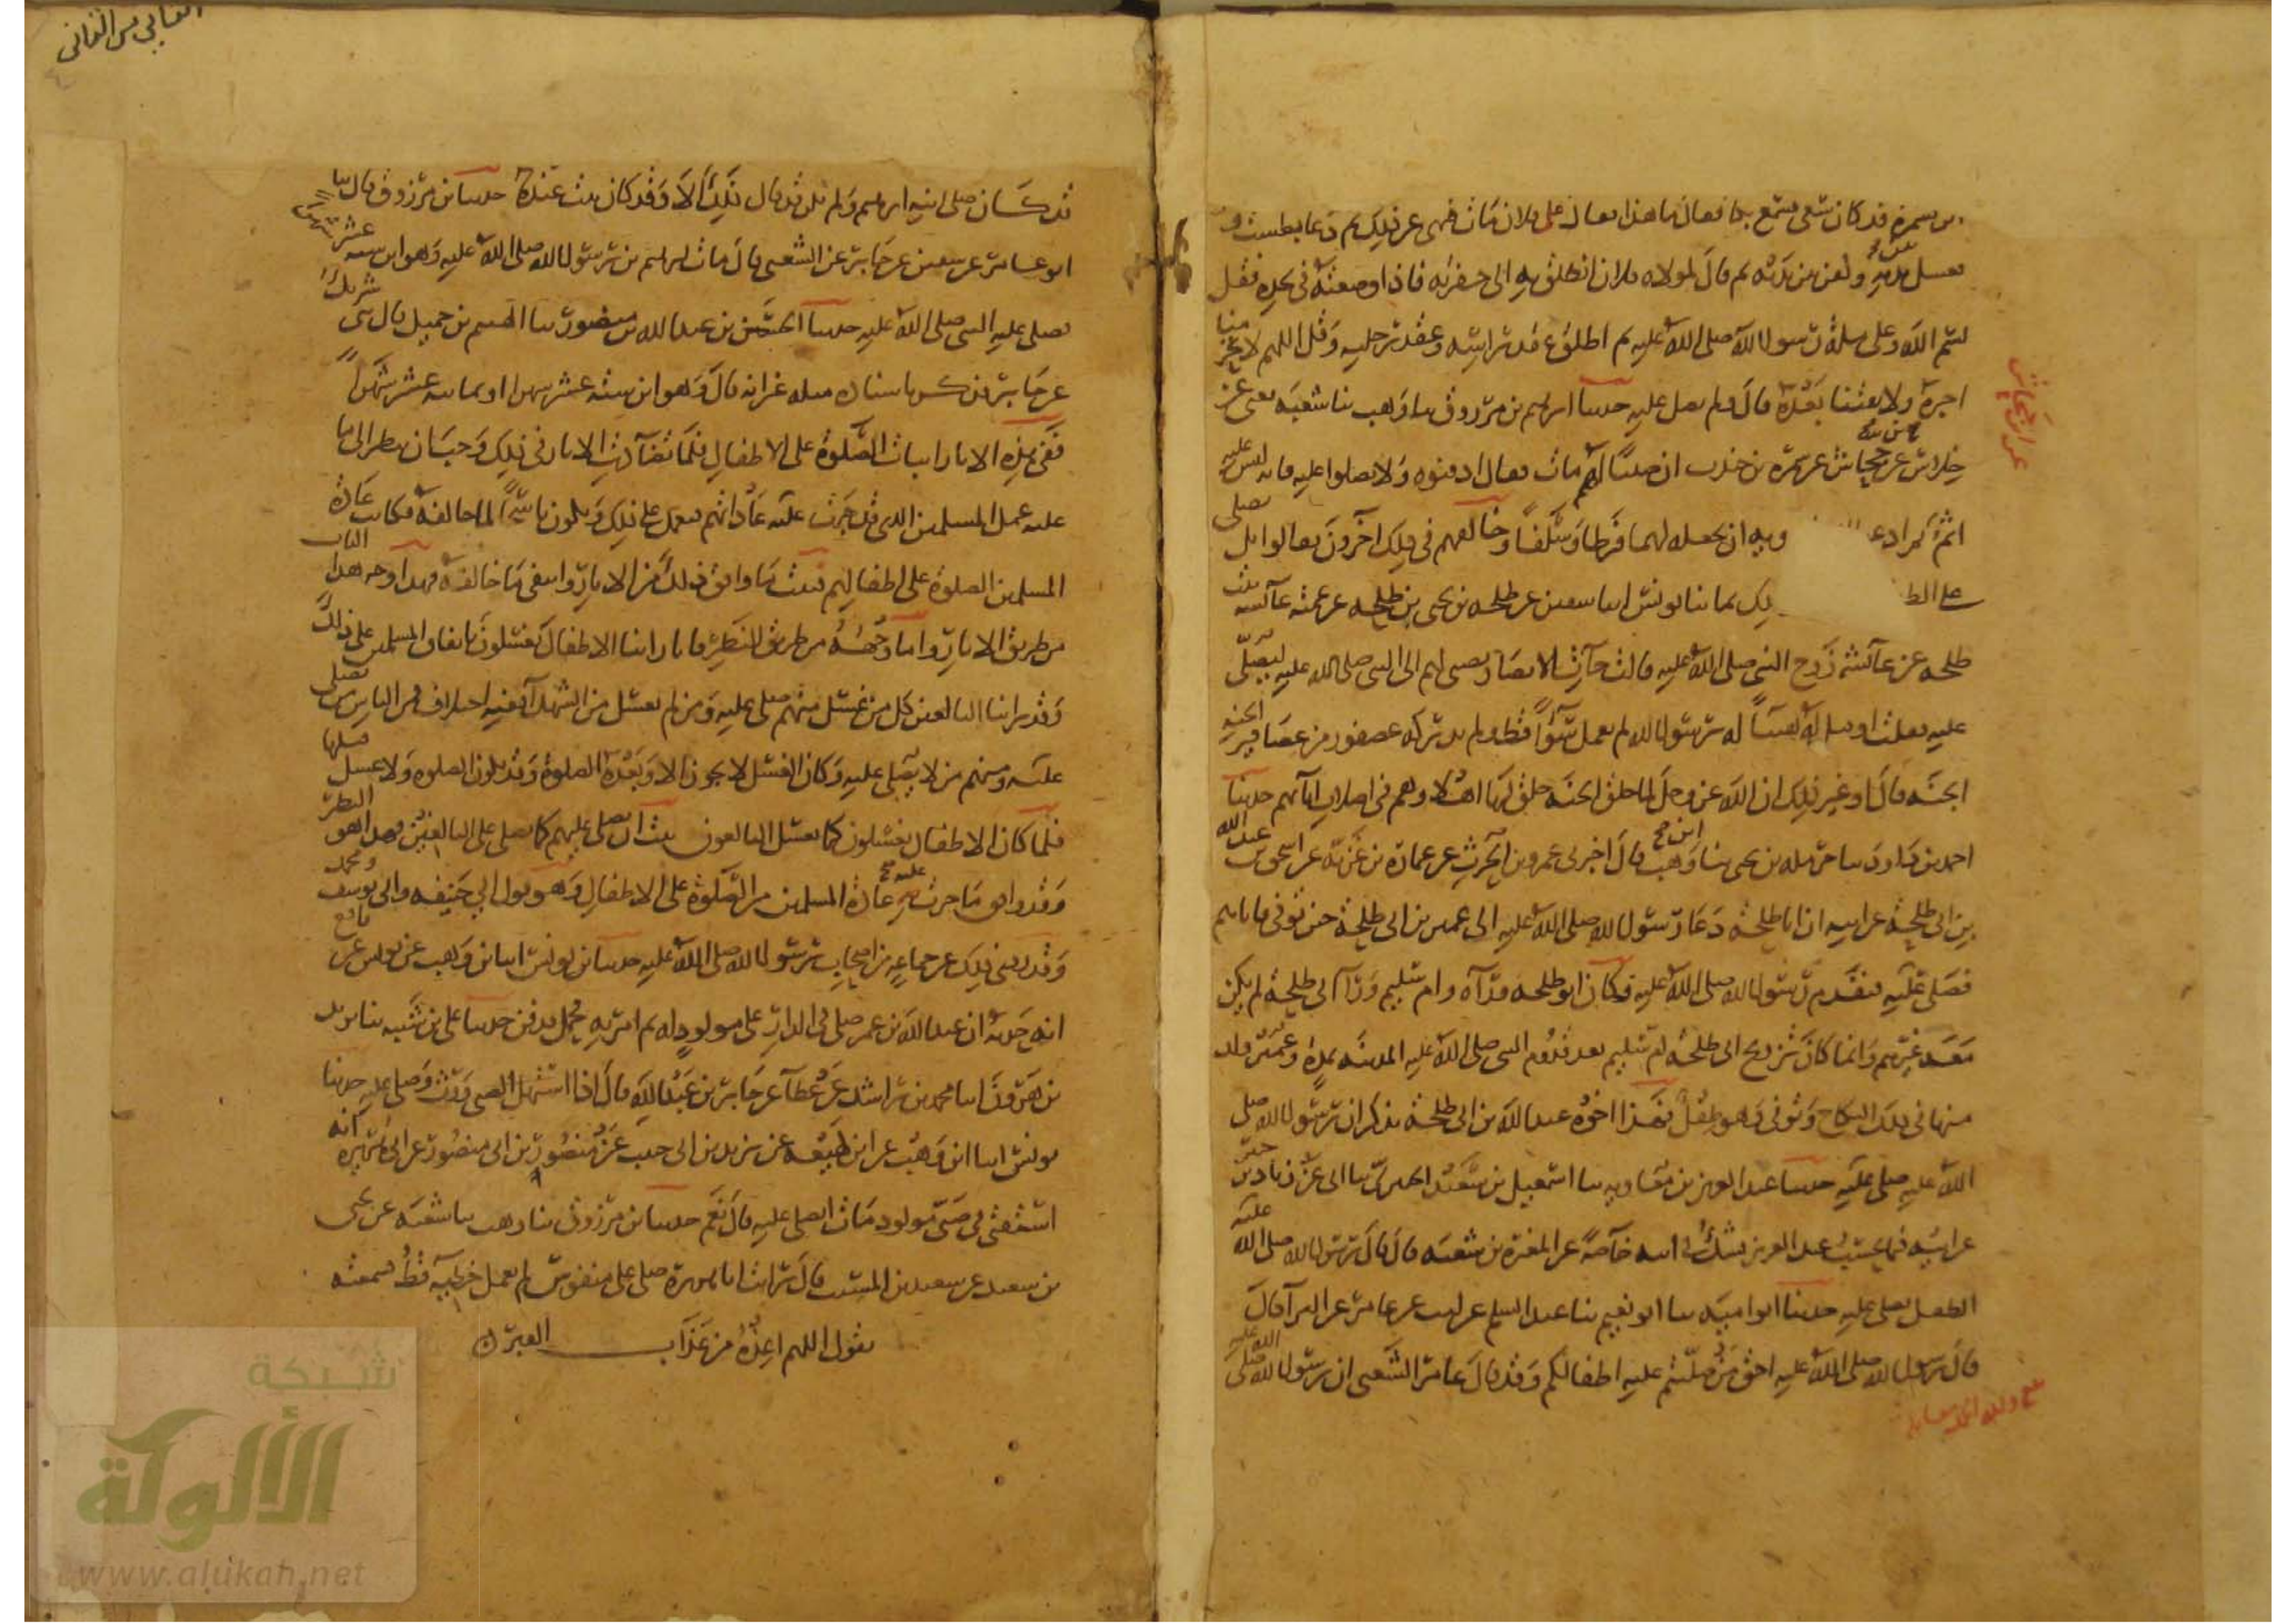 بن سمرة قد كان سقى فسمع بكا فقال ما هذا فقال على فلان مات فنهى عن ذلك ثم دعا بطست
فغسل بين يديه وكفن بين يديه ثم قال لمولاه فلان انطلق به الى حفرته فاذا وضعته في لحده فقل
بسم الله وعلى سنة رسول الله صلى الله عليه ثم اطلق عقد راسه وعقد رجليه وقل اللهم لا تحرمنا
اجره ولا تفتنا بعده قال ولم يصل عليه حدثنا ابرهيم بن مرزوق ثنا وهب ثنا شعبة يعني عن
جلاس عن ابن جحاش عن سمرة بن جندب ان صبيا له مات فقال ادفنوه ولا تصلوا عليه فانه ليس عليه
اثم ثم ادع وبه ان يجعله لهما فرطا وسلفا وخالفهم في ذلك اخرون فقالوا بل يصلى
على الطفل ذلك بما ثنا يونس انبا سفين عن طلحة بن يحيى بن طلحة عن عمته عائشة بنت
طلحة عن عائشة زوج النبي صلى الله عليه قالت جات الانصار بصبي لهم الى النبي صلى الله عليه ليصلي
عليه فقلت او قيل له هنيئا له يرسول الله لم يعمل سوا قط ولم يدركه عصفور من عصافير الجنة
الجنة قال او غير ذلك ان الله عز وجل لما خلق الجنة خلق لها اهلا وهم في اصلاب ابائهم حدثنا
احمد بن داود ثنا حرملة بن يحيى ثنا ابن وهب قال اخبرني عمرو بن الحرث عن عمارة بن غزية عن اسحق بن عبد الله
بن ابي طلحة عن ابيه ان ابا طلحة دعا رسول الله صلى الله عليه الى عمير بن ابي طلحة حين توفي فاتاهم
فصلى عليه فتقدم رسول الله صلى الله عليه فكان ابو طلحة وراه وام سليم ورا ابي طلحة لم يكن
معه غيرهم وانما كان تزويج ابي طلحة ام سليم بعد قدوم النبي صلى الله عليه المدينة بمدة وعمير ولد
منها في ذلك النكاح وتوفي وهو طفل فهذا اخوه عبد الله بن ابي طلحة يذكر ان رسول الله صلى
الله عليه صلى عليه حدثنا عبد العزيز بن معاوية ثنا اسمعيل بن سعيد الجبيري ثنا ابي عن زياد بن جبير
عن ابيه فيما يحسب عبد العزيز يشك في ابيه خاصة عن المغيرة بن شعبة قال قال رسول الله صلى الله عليه
الطفل يصلى عليه حدثنا ابو امية ثنا ابو نعيم ثنا عبد السلم عن ليث عن عامر عن البرا قال
قال رسول الله صلى الله عليه احق من صليتم عليه اطفالكم وقد قال عامر الشعبي ان رسول الله صلى الله عليه
قد كان صلى على ابنه ابرهيم ولم يكن قد قال ذلك الا وقد كان ثبت عنده حدثنا ابن مرزوق قال ثنا
ابو عامر عن سفين عن جابر عن الشعبي قال مات ابرهيم بن رسول الله صلى الله عليه وهو ابن ستة عشر شهرا
فصلى عليه النبي صلى الله عليه حدثنا الحسين بن عبد الله بن منصور ثنا الهيثم بن جميل قال ثنى شريك
عن جابر فذكر باسناده مثله غير انه قال وهو ابن ستة عشر شهرا او ثمانية عشر شهرا
ففي هذه الاثار اثبات الصلوة على الاطفال فلما تضادت الاثار في ذلك وجب ان ينظر الى ما
عليه عمل المسلمين الذي قد جرت عليه عاداتهم فيعمل على ذلك ويكون ناسخا لما خالفه فكانت عادة
المسلمين الصلوة على اطفالهم فثبت ما وافق ذلك من الاثار وانتفى ما خالفه فهذا وجه هذا الباب
من طريق الاثار واما وجهه من طريق النظر فانا راينا الاطفال يغسلون باتفاق المسلمين على ذلك
وقد راينا البالغين كل من غسل منهم صلي عليه ومن لم يغسل من الشهدا ففيه اختلاف فمن الناس من يصلي
عليه ومنهم من لا يصلي عليه وكان الغسل لا يكون الا وبعده الصلوة وقد يكون الصلوة ولا غسل قبلها
فلما كان الاطفال يغسلون كما يغسل البالغون ثبت ان يصلى عليهم كما يصلى على البالغين فهذا هو النظر
وقد وافق ما جرت عليه عادة المسلمين من الصلوة على الاطفال وهو قول ابي حنيفة وابي يوسف ومحمد
وقد روي ذلك عن جماعة من اصحاب رسول الله صلى الله عليه حدثنا يونس انبا ابن وهب عن يونس عن نافع
انه حدثه ان عبد الله بن عمر صلى في الدار على مولود له ثم امر به فحمل فدفن حدثنا علي بن شيبة ثنا يزيد
بن هرون انبا محمد بن راشد عن عطا عن جابر بن عبد الله قال اذا استهل الصبي ورث وصلي عليه حدثنا
يونس انبا ابن وهب عن ابن لهيعة عن يزيد بن ابي حبيب عن منصور بن ابي منصور عن ابي هريرة انه
استفتى في صبي مولود مات ايصلى عليه قال نعم حدثنا ابن مرزوق ثنا وهب ثنا شعبة عن يحيى
بن سعيد عن سعيد بن المسيب قال رايت ابا هريرة صلى على منفوس لم يعمل خطيئة قط فسمعته
يقول اللهم اعذه من عذاب القبر
شبكة
الألوكة
www.alukah.net